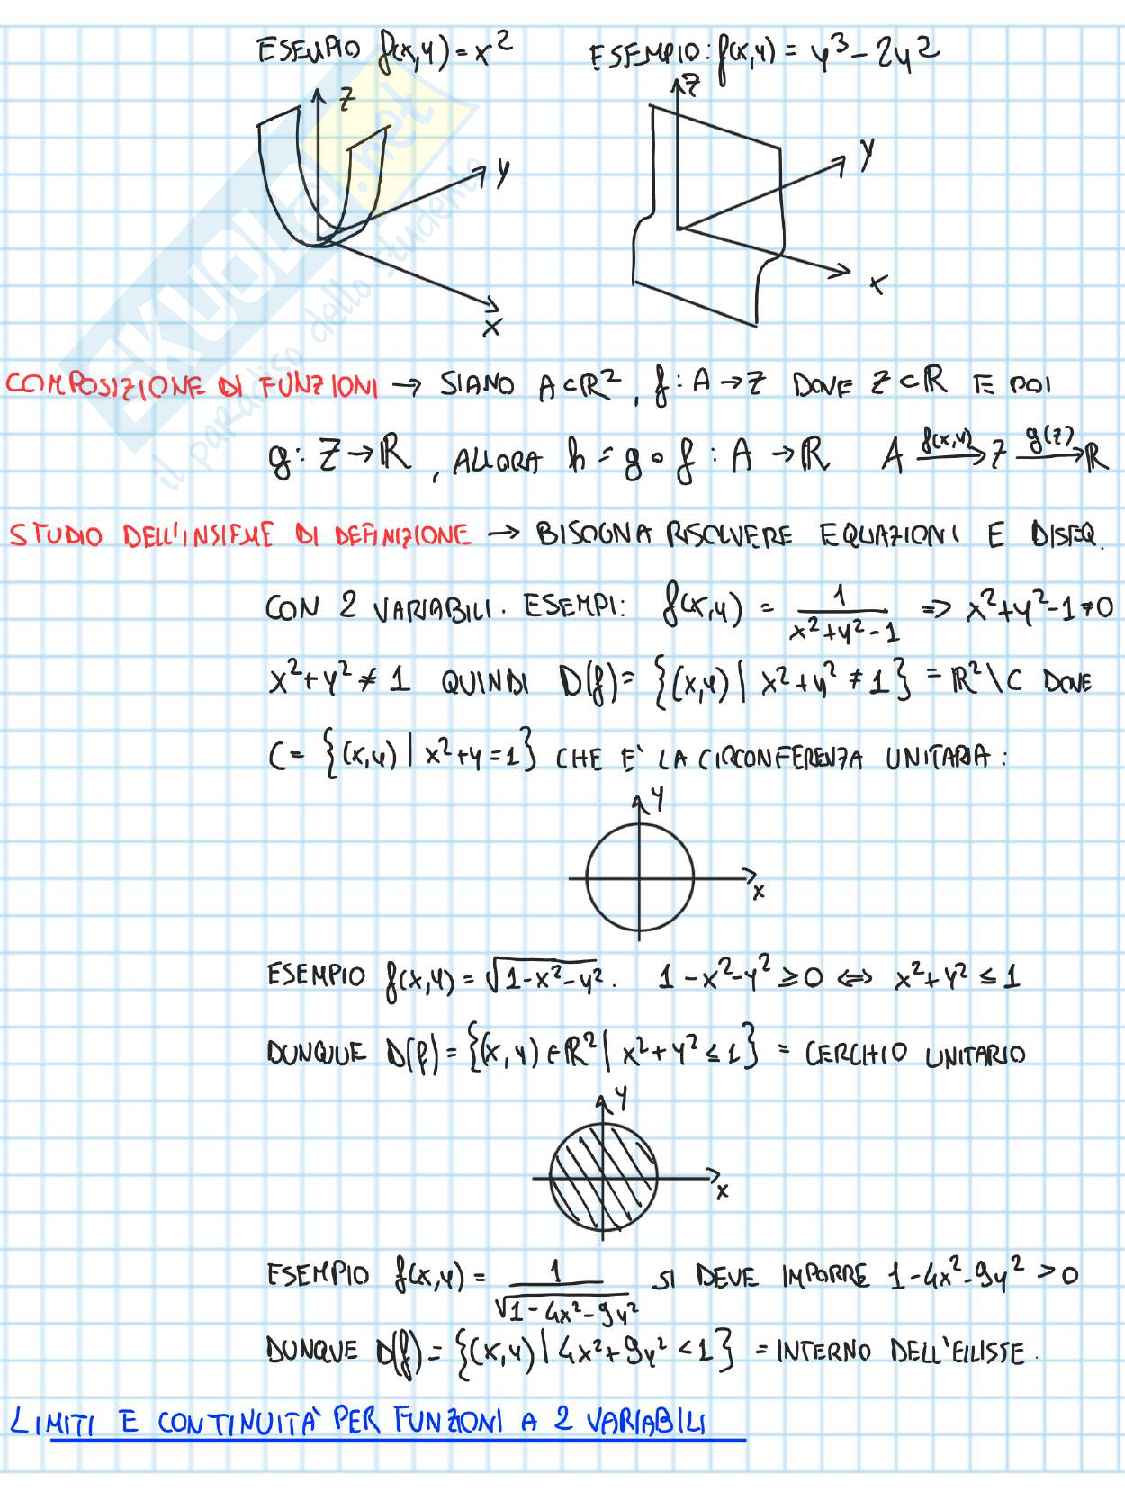 ESEMPIO f(x,y) = x² ESEMPIO: f(x,y) = y³ - 2y²
z z
y y
x x
COMPOSIZIONE DI FUNZIONI → SIANO A⊂ℝ², f: A→Z DOVE Z⊂ℝ E POI
g: Z→ℝ, ALLORA h = g∘f : A→ℝ A —f(x,y)→ Z —g(z)→ ℝ
STUDIO DELL'INSIEME DI DEFINIZIONE → BISOGNA RISOLVERE EQUAZIONI E DISEQ.
CON 2 VARIABILI. ESEMPI: f(x,y) = 1/(x²+y²-1) => x²+y²-1≠0
x²+y² ≠ 1 QUINDI D(f) = {(x,y) | x²+y² ≠ 1} = ℝ²\C DOVE
C = {(x,y) | x²+y=1} CHE E' LA CIRCONFERENZA UNITARIA:
y
x
ESEMPIO f(x,y) = √(1-x²-y²). 1-x²-y² ≥ 0 <=> x²+y² ≤ 1
DUNQUE D(f) = {(x,y)∈ℝ² | x²+y² ≤ 1} = CERCHIO UNITARIO
y
x
ESEMPIO f(x,y) = 1/√(1-4x²-9y²) SI DEVE IMPORRE 1-4x²-9y² > 0
DUNQUE D(f) = {(x,y) | 4x²+9y² < 1} = INTERNO DELL'ELLISSE.
LIMITI E CONTINUITA' PER FUNZIONI A 2 VARIABILI
SKUOLA.net
il paradiso dello studente